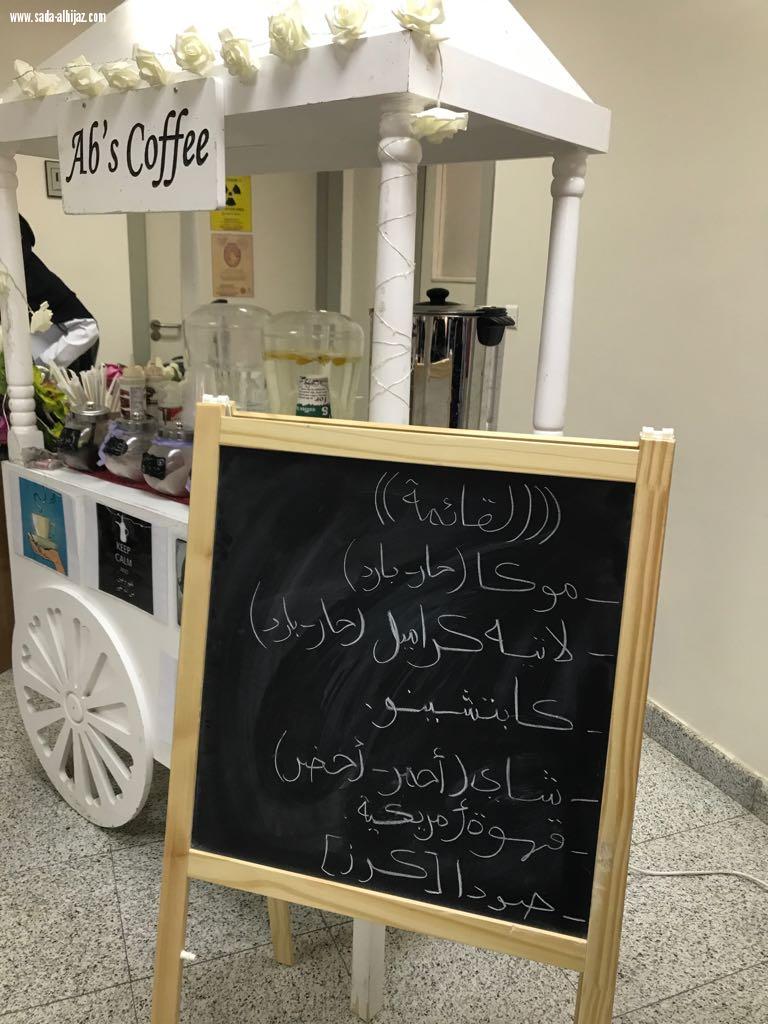 www.sada-alhijaz.com
Ab's Coffee
KEEP
CALM
AND
((القائمة))
- موكا (حار-بارد)
- لاتيه كراميل (حار-بارد)
- كابتشينو.
- شاي (أحمر-أخضر)
- قهوة أمريكية.
- صودا [كرز]